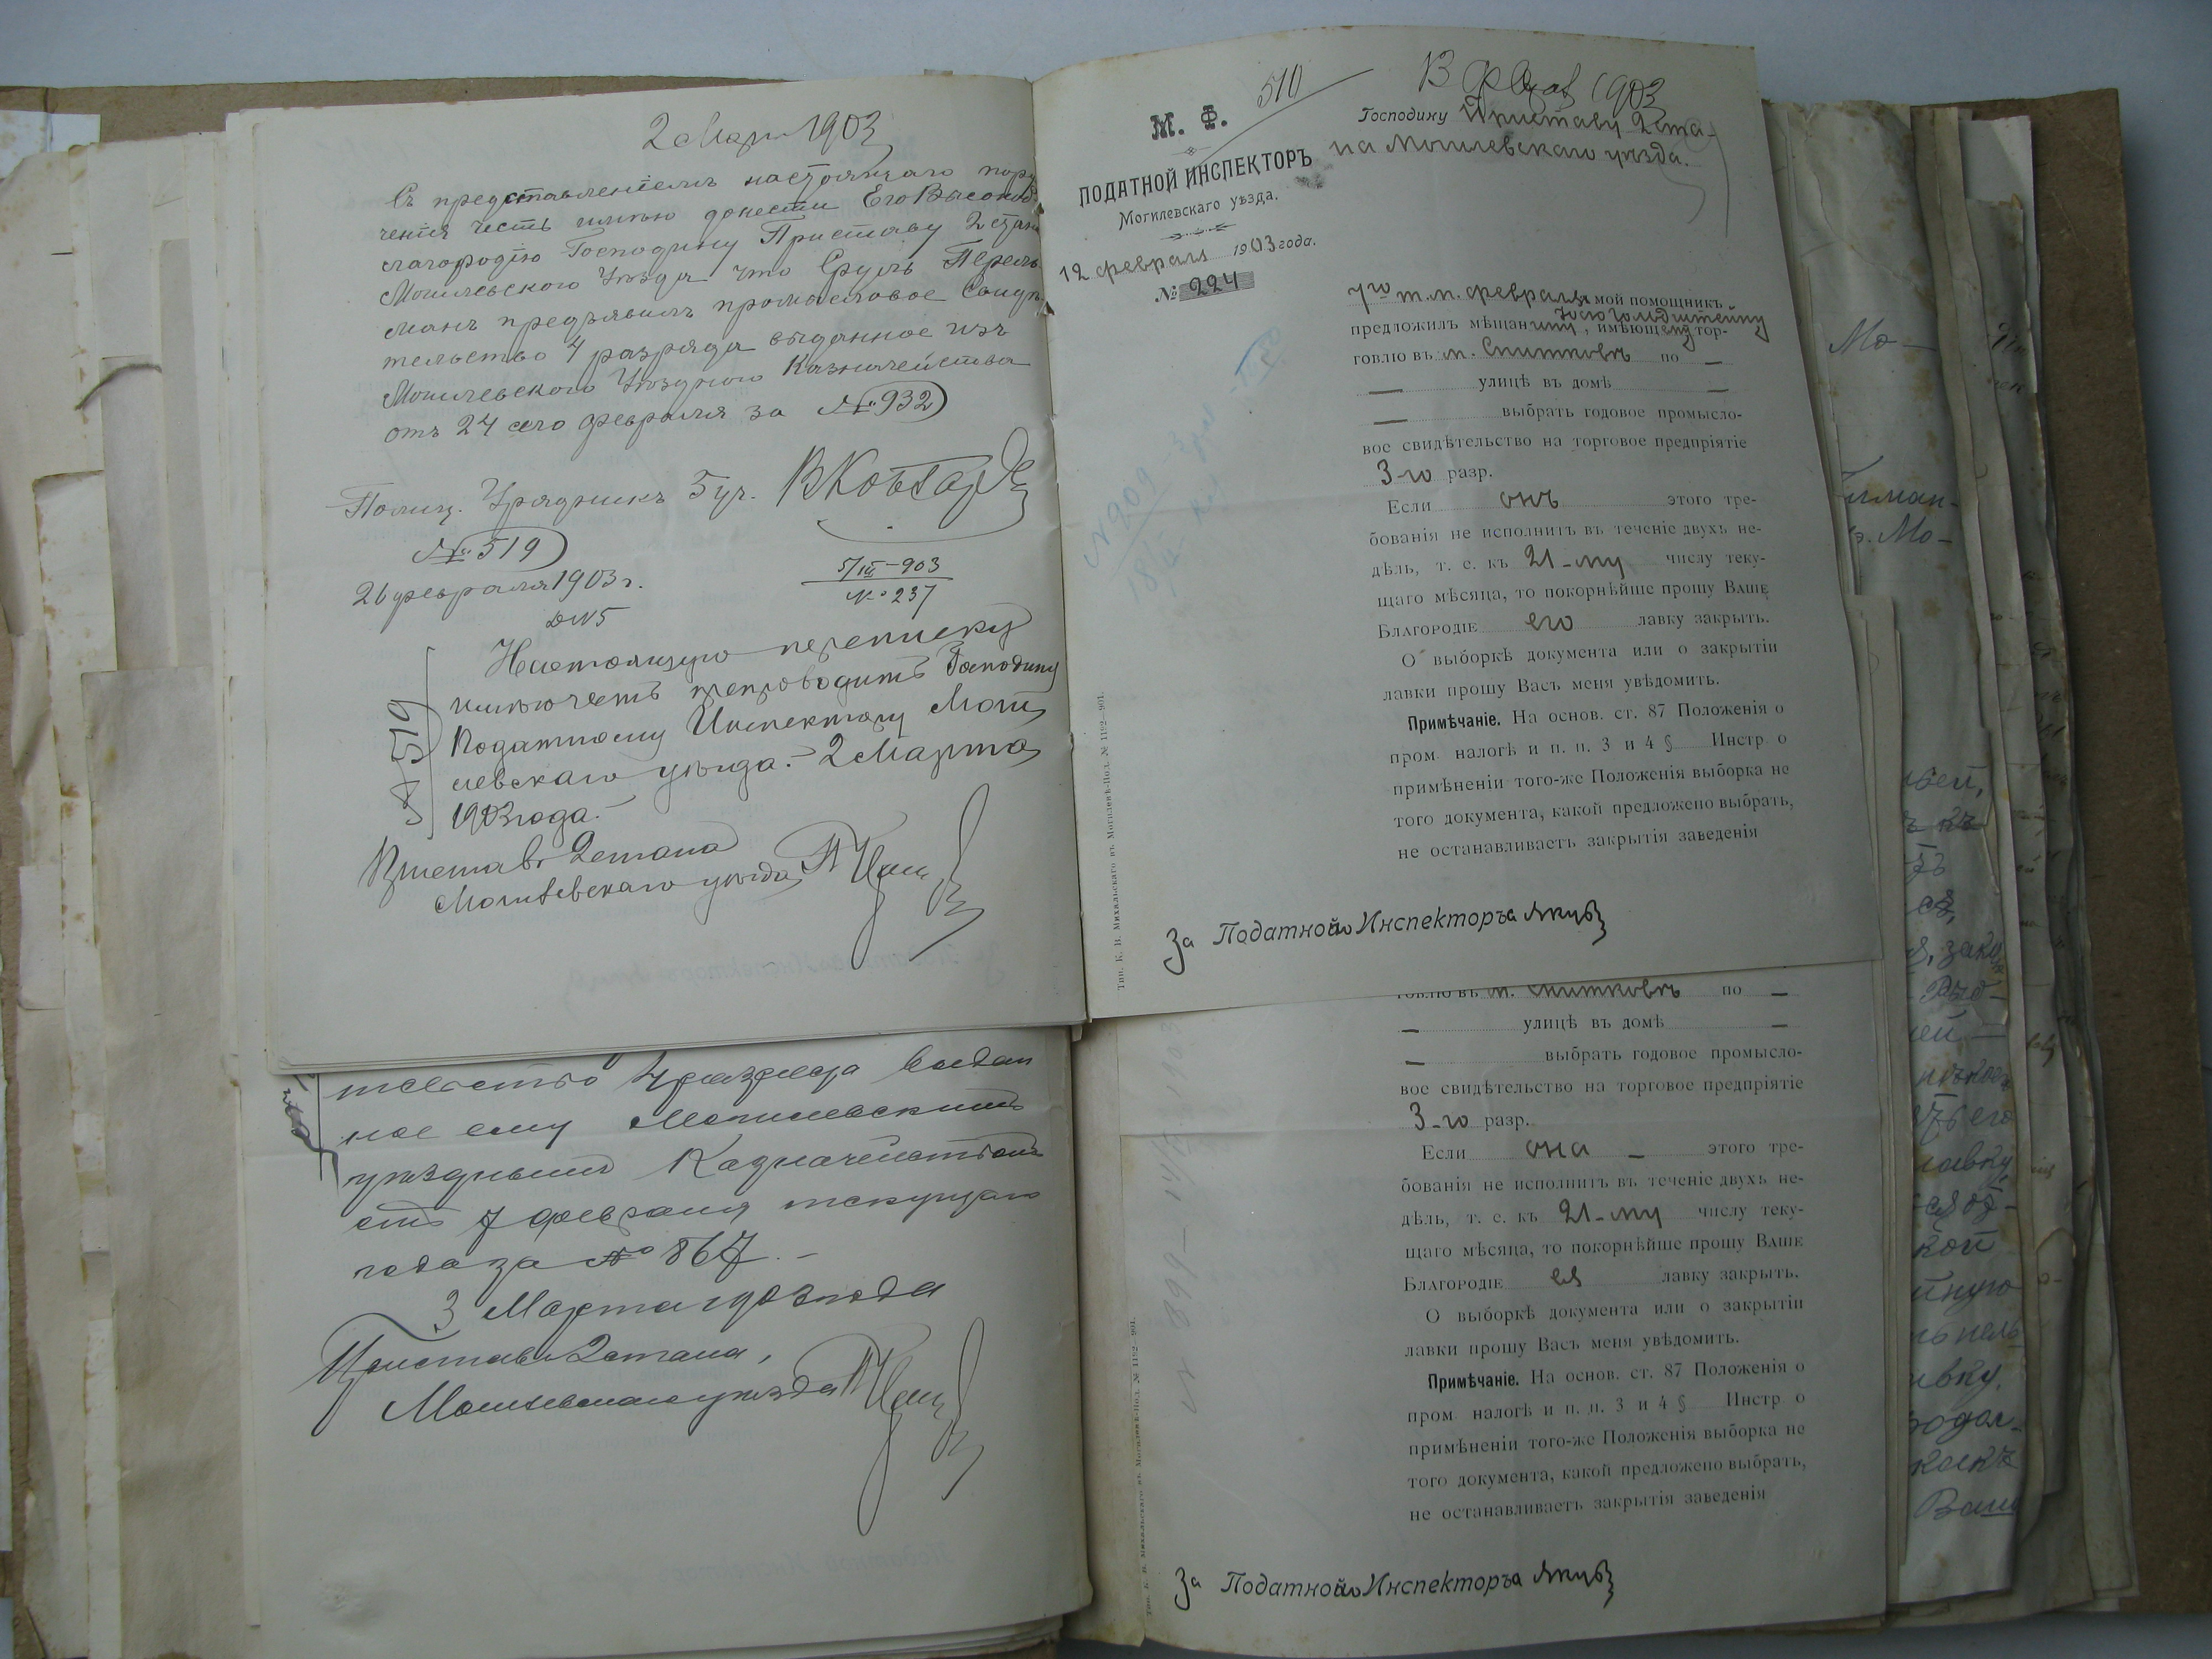 2 Март 1903
Съ представленіемъ настоящаго пору
ченія честь имѣю донести Его Высоко
благородію Господину Приставу 2 стан
Могилевского Уѣзда что Сруль Перель
манъ предъявилъ промысловое Свидѣ
тельство 4 разряда выданное изъ
Могилевского Уѣздного Казначейства
отъ 24 сего февраля за №932
Полиц. Урядникъ 5 уч.
№519
26 февраля 1903 г.
5/III-903
№237
Настоящую переписку
имѣю честь препроводить Господину
Податному Инспектору Моги
левскаго уѣзда.- 2 Марта
1903 года.-
№ 519
Приставъ 2 стана
Могилевскаго уѣзда
тельство 4 разряда выдан
ное ему Могилевскимъ
уѣзднымъ Казначействомъ
отъ 7 февраля текущаго
года за № 867.-
3 Марта 1903 года
Приставъ 2 стана,
Могилевскаго уѣзда
510
1903
М. Ф.
ПОДАТНОЙ ИНСПЕКТОРЪ
Могилевскаго уѣзда.
12 февраля 1903 года.
№ 224
Господину Приставу 2 ста-
на Могилевскаго уѣзда.
7го т.м. февраля мой помощникъ
предложилъ мѣщанину Гольдштейну, имѣющему тор-
говлю въ м. Снитковѣ по —
— улицѣ въ домѣ —
— выбрать годовое промысло-
вое свидѣтельство на торговое предпріятіе
3-го разр.
Если онъ этого тре-
бованія не исполнитъ въ теченіе двухъ не-
дѣль, т. е. къ 21-му числу теку-
щаго мѣсяца, то покорнѣйше прошу ВАШЕ
БЛАГОРОДІЕ его лавку закрыть.
О выборкѣ документа или о закрытіи
лавки прошу Васъ меня увѣдомить.
Примѣчаніе. На основ. ст. 87 Положенія о
пром. налогѣ и п. п. 3 и 4 § Инстр о
примѣненіи того-же Положенія выборка не
того документа, какой предложено выбрать,
не останавливаетъ закрытія заведенія
За Податного Инспектора Якуб
Тип. К. В. Михальскаго въ Могилевѣ-Под. № 1192—901.
№ 909
говлю въ м. Снитковѣ по —
— улицѣ въ домѣ —
— выбрать годовое промысло-
вое свидѣтельство на торговое предпріятіе
3-го разр.
Если она — этого тре-
бованія не исполнитъ въ теченіе двухъ не-
дѣль, т. е. къ 21-му числу теку-
щаго мѣсяца, то покорнѣйше прошу ВАШЕ
БЛАГОРОДІЕ ея лавку закрыть.
О выборкѣ документа или о закрытіи
лавки прошу Васъ меня увѣдомить.
Примѣчаніе. На основ. ст. 87 Положенія о
пром. налогѣ и п. п. 3 и 4 § Инстр о
примѣненіи того-же Положенія выборка не
того документа, какой предложено выбрать,
не останавливаетъ закрытія заведенія
За Податного Инспектора Якуб
Тип. К. В. Михальскаго въ Могилевѣ-Под. № 1192—901.
Мо—